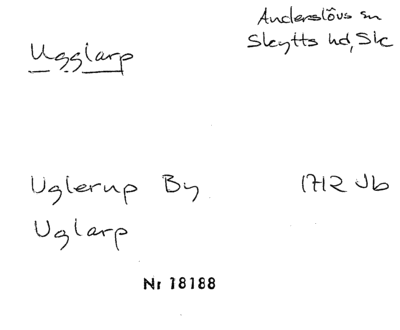 Ugglarp
Anderslövs sn
Skytts hd, Sk
Uglerup By 1712 Jb
Uglarp
Nr 18188